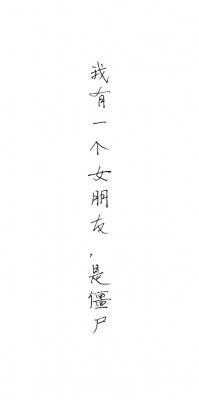 我有一个女朋友，是僵尸